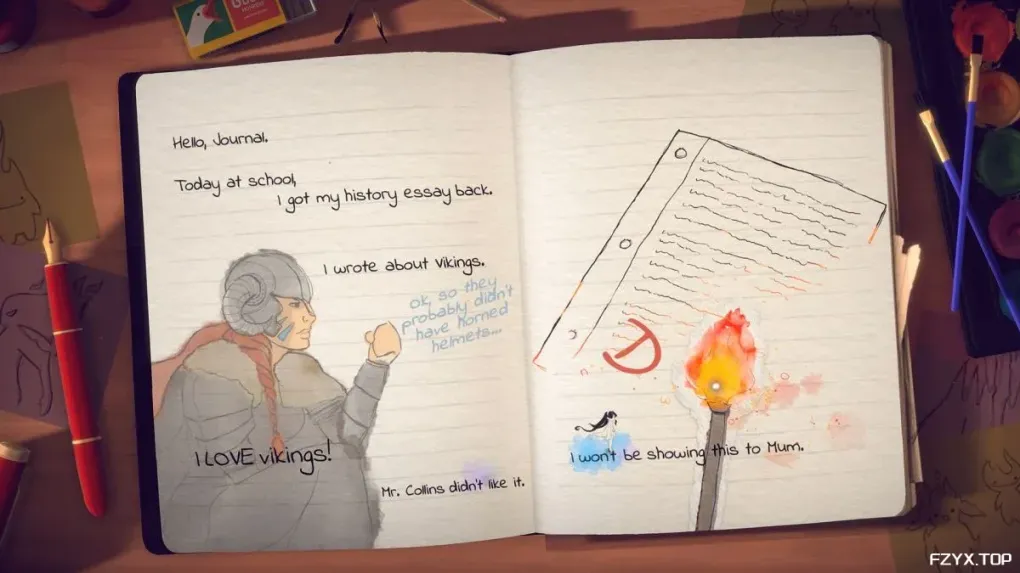 Hello, Journal.
Today at school,
I got my history essay back.
I wrote about vikings.
ok, so they
probably didn't
have horned
helmets...
I LOVE vikings!
Mr. Collins didn't like it.
D
I won't be showing this to Mum.
FZYX.TOP